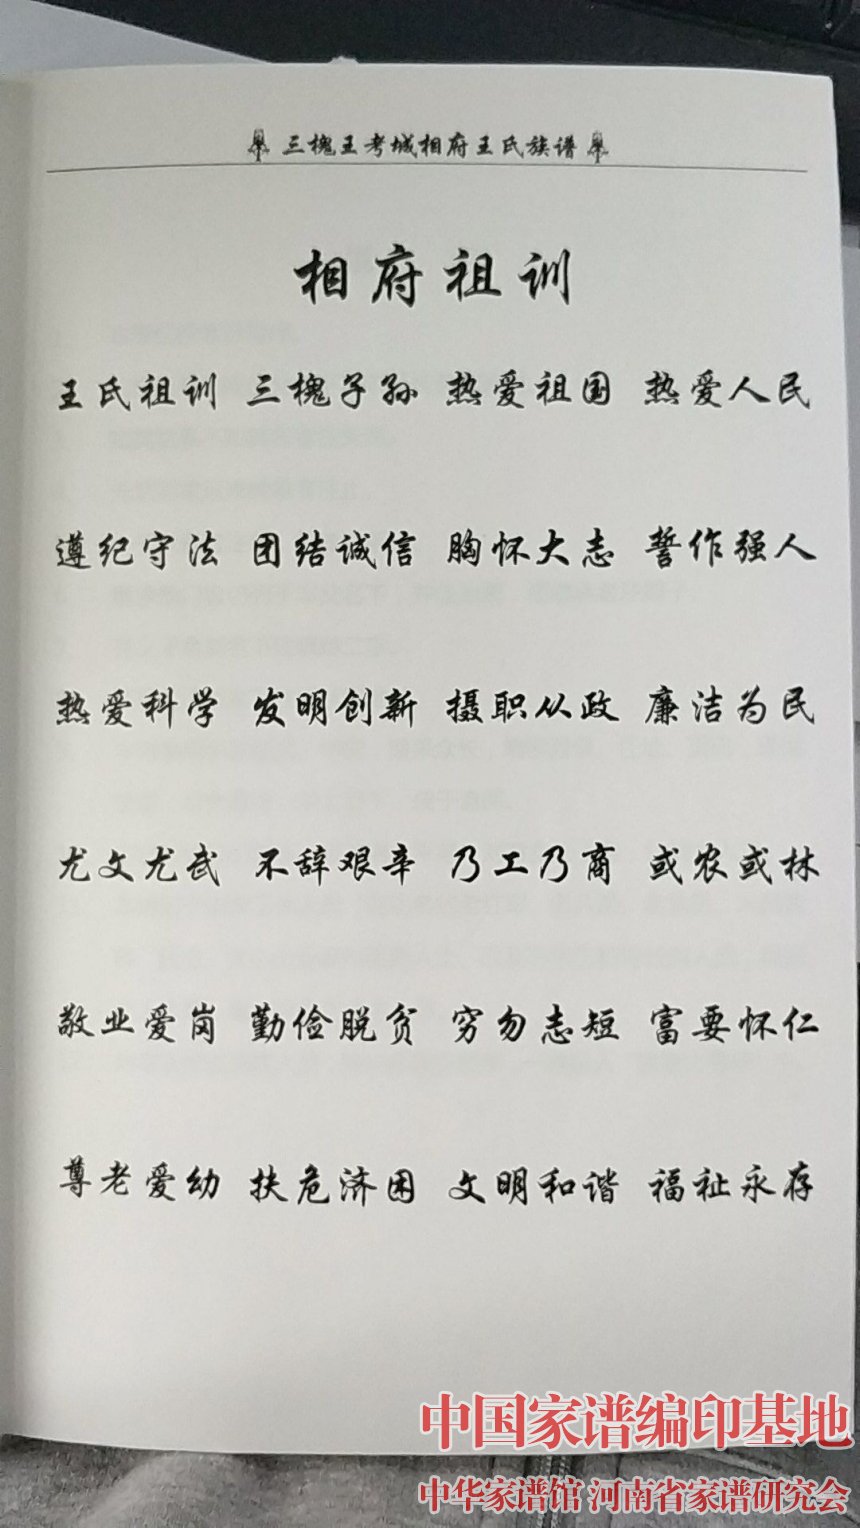 三槐王考城相府王氏族谱
相府祖训
王氏祖训 三槐子孙 热爱祖国 热爱人民
遵纪守法 团结诚信 胸怀大志 誓作强人
热爱科学 发明创新 摄职从政 廉洁为民
尤文尤武 不辞艰辛 乃工乃商 或农或林
敬业爱岗 勤俭脱贫 穷勿志短 富要怀仁
尊老爱幼 扶危济困 文明和谐 福祉永存
中国家谱编印基地
中华家谱馆 河南省家谱研究会